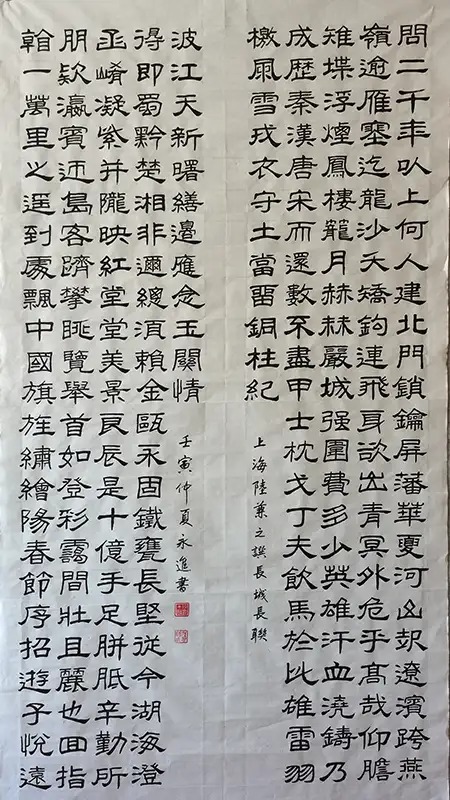 問二千年以上何人建北門鎖鑰屏藩華夏河山起遼濱跨燕
嶺逾雁塞迄龍沙夭矯鉤連飛身欲出青冥外危乎高哉仰瞻
雉堞浮煙鳳樓籠月赫赫嚴城强圍費多少英雄汗血澆鑄乃
成歷秦漢唐宋而還數不盡甲士枕戈丁夫飲馬於此雄雷羽
檄風雪戎衣守土當留銅柱紀
上海陸兼之譔長城長聯
看一萬里之遥到處飄中國旗旌繡繪陽春節序招遊子悅遠
朋款瀛賓迎島客躋攀眺覽舉首如登彩靄間壯且麗也回指
巫崤凝紫并隴映紅堂堂美景良辰是十億手足胼胝辛勤所
得即蜀黔楚湘非邇總須賴金甌永固鐵甕長堅從今湖海澄
波江天新曙繕邊應念玉關情
壬寅仲夏永進書